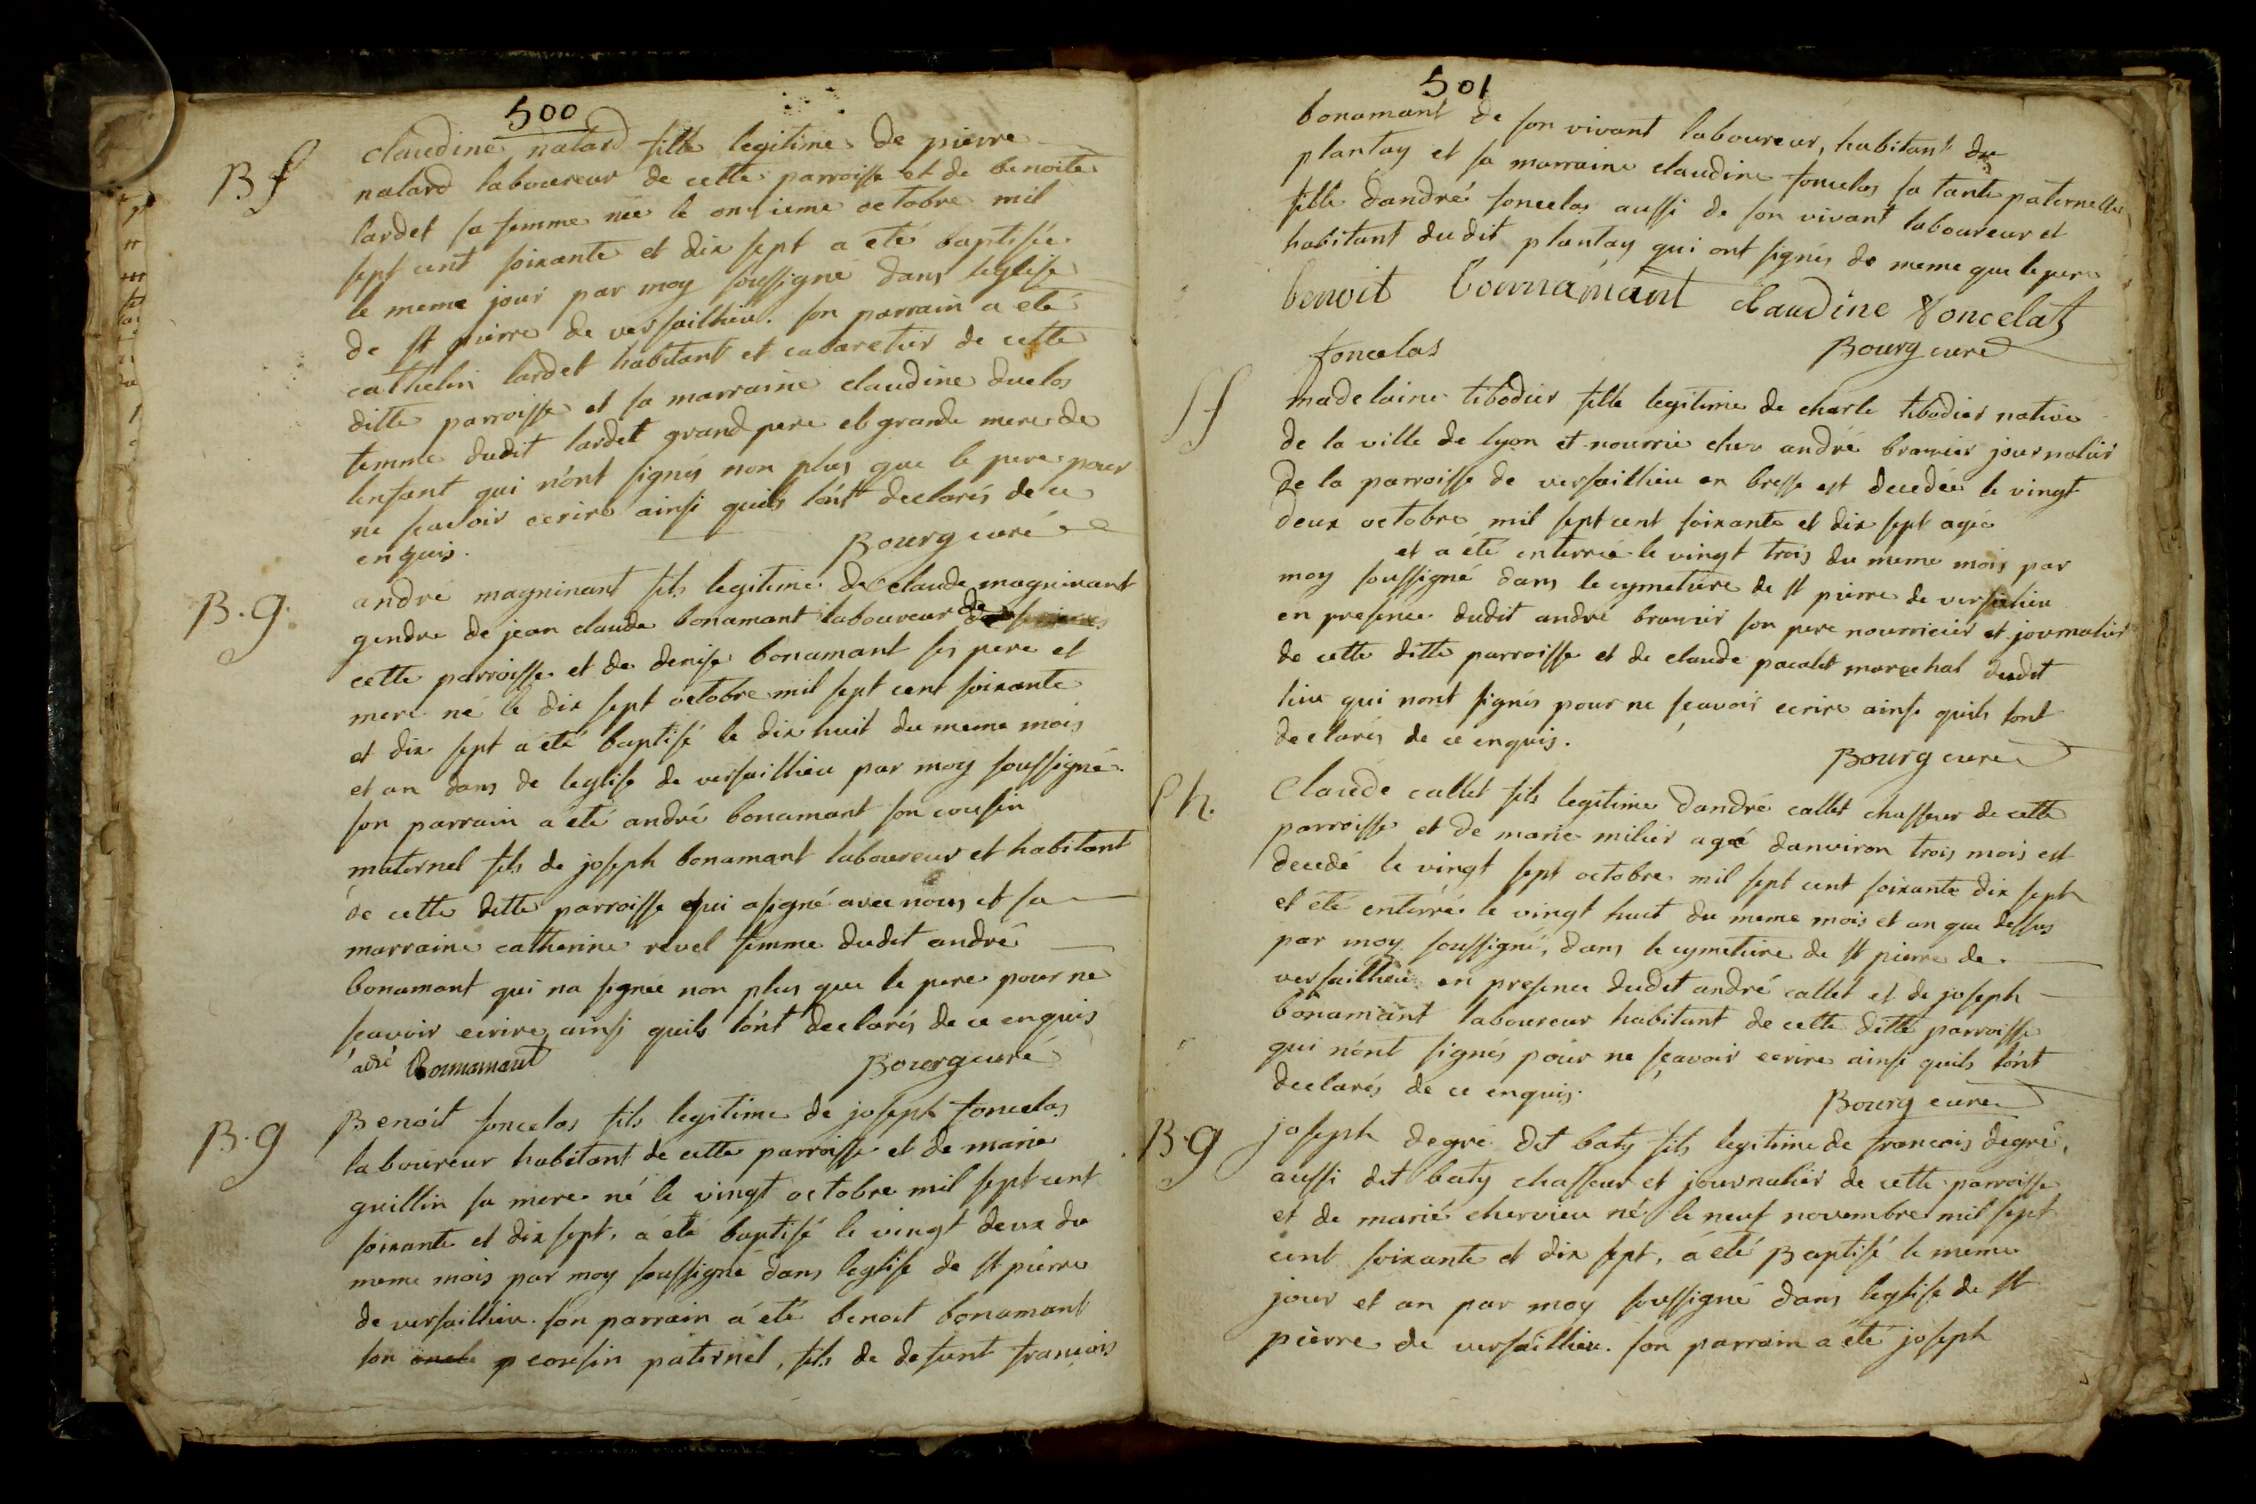 500
B f
claudine nalard fille legitime de pierre
nalard laboureur de cette parroisse et de benoite
lardet sa femme née le onzieme octobre mil
sept cent soixante et dix sept a eté baptisée
le meme jour par moy soussigné dans leglise
de st pierre de versaillieu. son parrain a eté
cathelin lardet habitant et cabaretier de cette
ditte parroisse et sa marraine claudine duclos
femme dudit lardet grand pere et grande mere de
lenfant qui n'ont signés non plus que le pere pour
ne scavoir ecrire ainsi quils l'ont declarés de ce
enquis.
Bourg curé
B. g.
andré magninant fils legitime de claude magninant
gendre de jean claude bonamant laboureur de
cette parroisse et de denise bonamant ses pere et
mere né le dix sept octobre mil sept cent soixante
et dix sept a eté baptisé le dix huit du meme mois
et an dans de leglise de versaillieu par moy soussigné.
son parrain a eté andré bonamant son cousin
maternel fils de joseph bonamant laboureur et habitant
de cette ditte parroisse qui a signé avec nous et sa
marraine catherine revel femme dudit andré
bonamant qui na signée non plus que le pere pour ne
scavoir ecrire, ainsi quils l'ont declarés de ce enquis
Bonnamant
Bourg curé
B. g
Benoit foncelas fils legitime de joseph foncelas
laboureur habitant de cette parroisse et de marie
guillin sa mere né le vingt octobre mil sept cent
soixante et dix sept, a eté baptisé le vingt deux du
meme mois par moy soussigné dans leglise de st pierre
de versaillieu. son parrain a eté benoit bonamant
son oncle p cousin paternel, fils de defunt francois
501
bonamant de son vivant laboureur, habitant du
plantay et sa marraine claudine foncelas sa tante paternelle
fille dandré foncelas aussi de son vivant laboureur et
habitant dudit plantay qui ont signés de meme que le pere
benoit bonnamant claudine foncelas
foncelas
Bourg curé
S f
madelaine tibodier fille legitime de charle tibodier native
de la ville de lyon et nourrie chez andré bramier journalier
de la parroisse de versaillieu en bresse est decedée le vingt
deux octobre mil sept cent soixante et dix sept agée
et a été enterrée le vingt trois du meme mois par
moy soussigné dans le cymetiere de st pierre de versalieu
en presence dudit andré bramier son pere nourricier et journalier
de cette ditte parroisse et de claude pacalet marechal dudit
lieu qui nont signés pour ne sçavoir ecrire ainsi quils lont
declarés de ce enquis.
Bourg curé
Claude callet fils legitime dandré callet chasseur de cette
parroisse et de marie milier agé danviron trois mois est
decedé le vingt sept octobre mil sept cent soixante dix sept
et eté enterré le vingt huit du meme mois et an que dessus
par moy soussigné, dans le cymetiere de st pierre de
versaillieu en presence dudit andré callet et de joseph
bonamant laboureur habitant de cette ditte parroisse
qui n'ont signés pour ne sçavoir ecrire ainsi quils l'ont
declarés de ce enquis.
Bourg curé
B. g
joseph degré dit baty fils legitime de francois degré,
aussi dit baty chasseur et journalier de cette parroisse
et de marie chervieu né le neuf novembre mil sept
cent soixante et dix sept, a eté Baptisé le meme
jour et an par moy soussigné dans leglise de st
pierre de versaillieu. son parrain a eté joseph